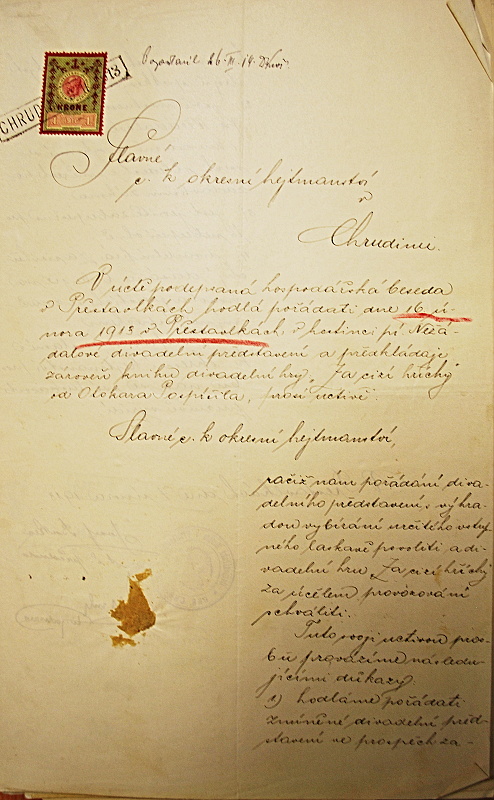 CHRUD 13
1
KRONE
26. III. 14.
Slavné
c. k. okresní hejtmanství
v
Chrudimi.
V úctě podepsaná hospodářská beseda
v Přestavlkách hodlá pořádati dne 16. ú-
nora 1913 v Přestavlkách v hostinci pí. Nezá-
dalové divadelní představení a předkládajíc
zároveň knihu divadelní hry „Za cizí hříchy"
od Otokara Pospíšila, prosí uctivě:
Slavné c. k. okresní hejtmanství,
račiž nám pořádání diva-
delního představení s výhra-
dou vybírání určitého vstup-
ného laskavě povoliti a di-
vadelní hru „Za cizí hříchy"
za účelem provozování
schváliti.
Tuto svoji uctivou pros-
bu provázíme následu-
jícími důkazy
1) hodláme pořádati
zmíněné divadelní před-
stavení ve prospěch za-